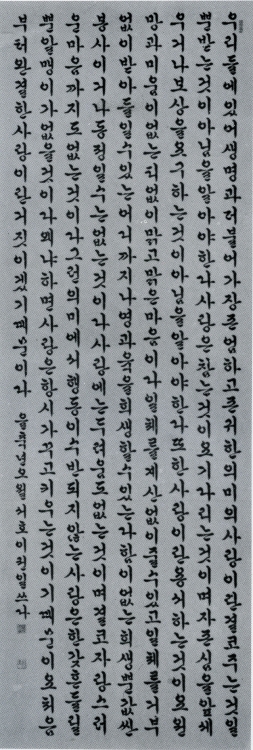 우리들에있어생명과더불어가장존엄하고존귀한의미의사랑이란결고주는것일
뿐받는것이아님을알아야한다사랑은참는것이요기다리는것이며자존심을앞세
우거나보상을요구하는것이아님을알아야한다또한사랑이란용서하는것이요원
망과미움이없는티없이맑고맑은마음이다일체를계산없이줄수있고일체를거부
없이받아들일수있는어디까지나영과육을희생할수있는다함이없는희생뿐값싼
봉사이거나동정일수는없는것이다사랑에는두려움도없는것이며결고자랑스러
운마음까지도없는것이다그런의미에서행동이수반되지않는사랑은한갓흔들릴
뿐알맹이가없을것이다왜냐하면사랑은항시가꾸고키우는것이기때문이요처음
부터완결한사랑이란거짓이겠기때문이다 을축년오월 서호이 일쓰다